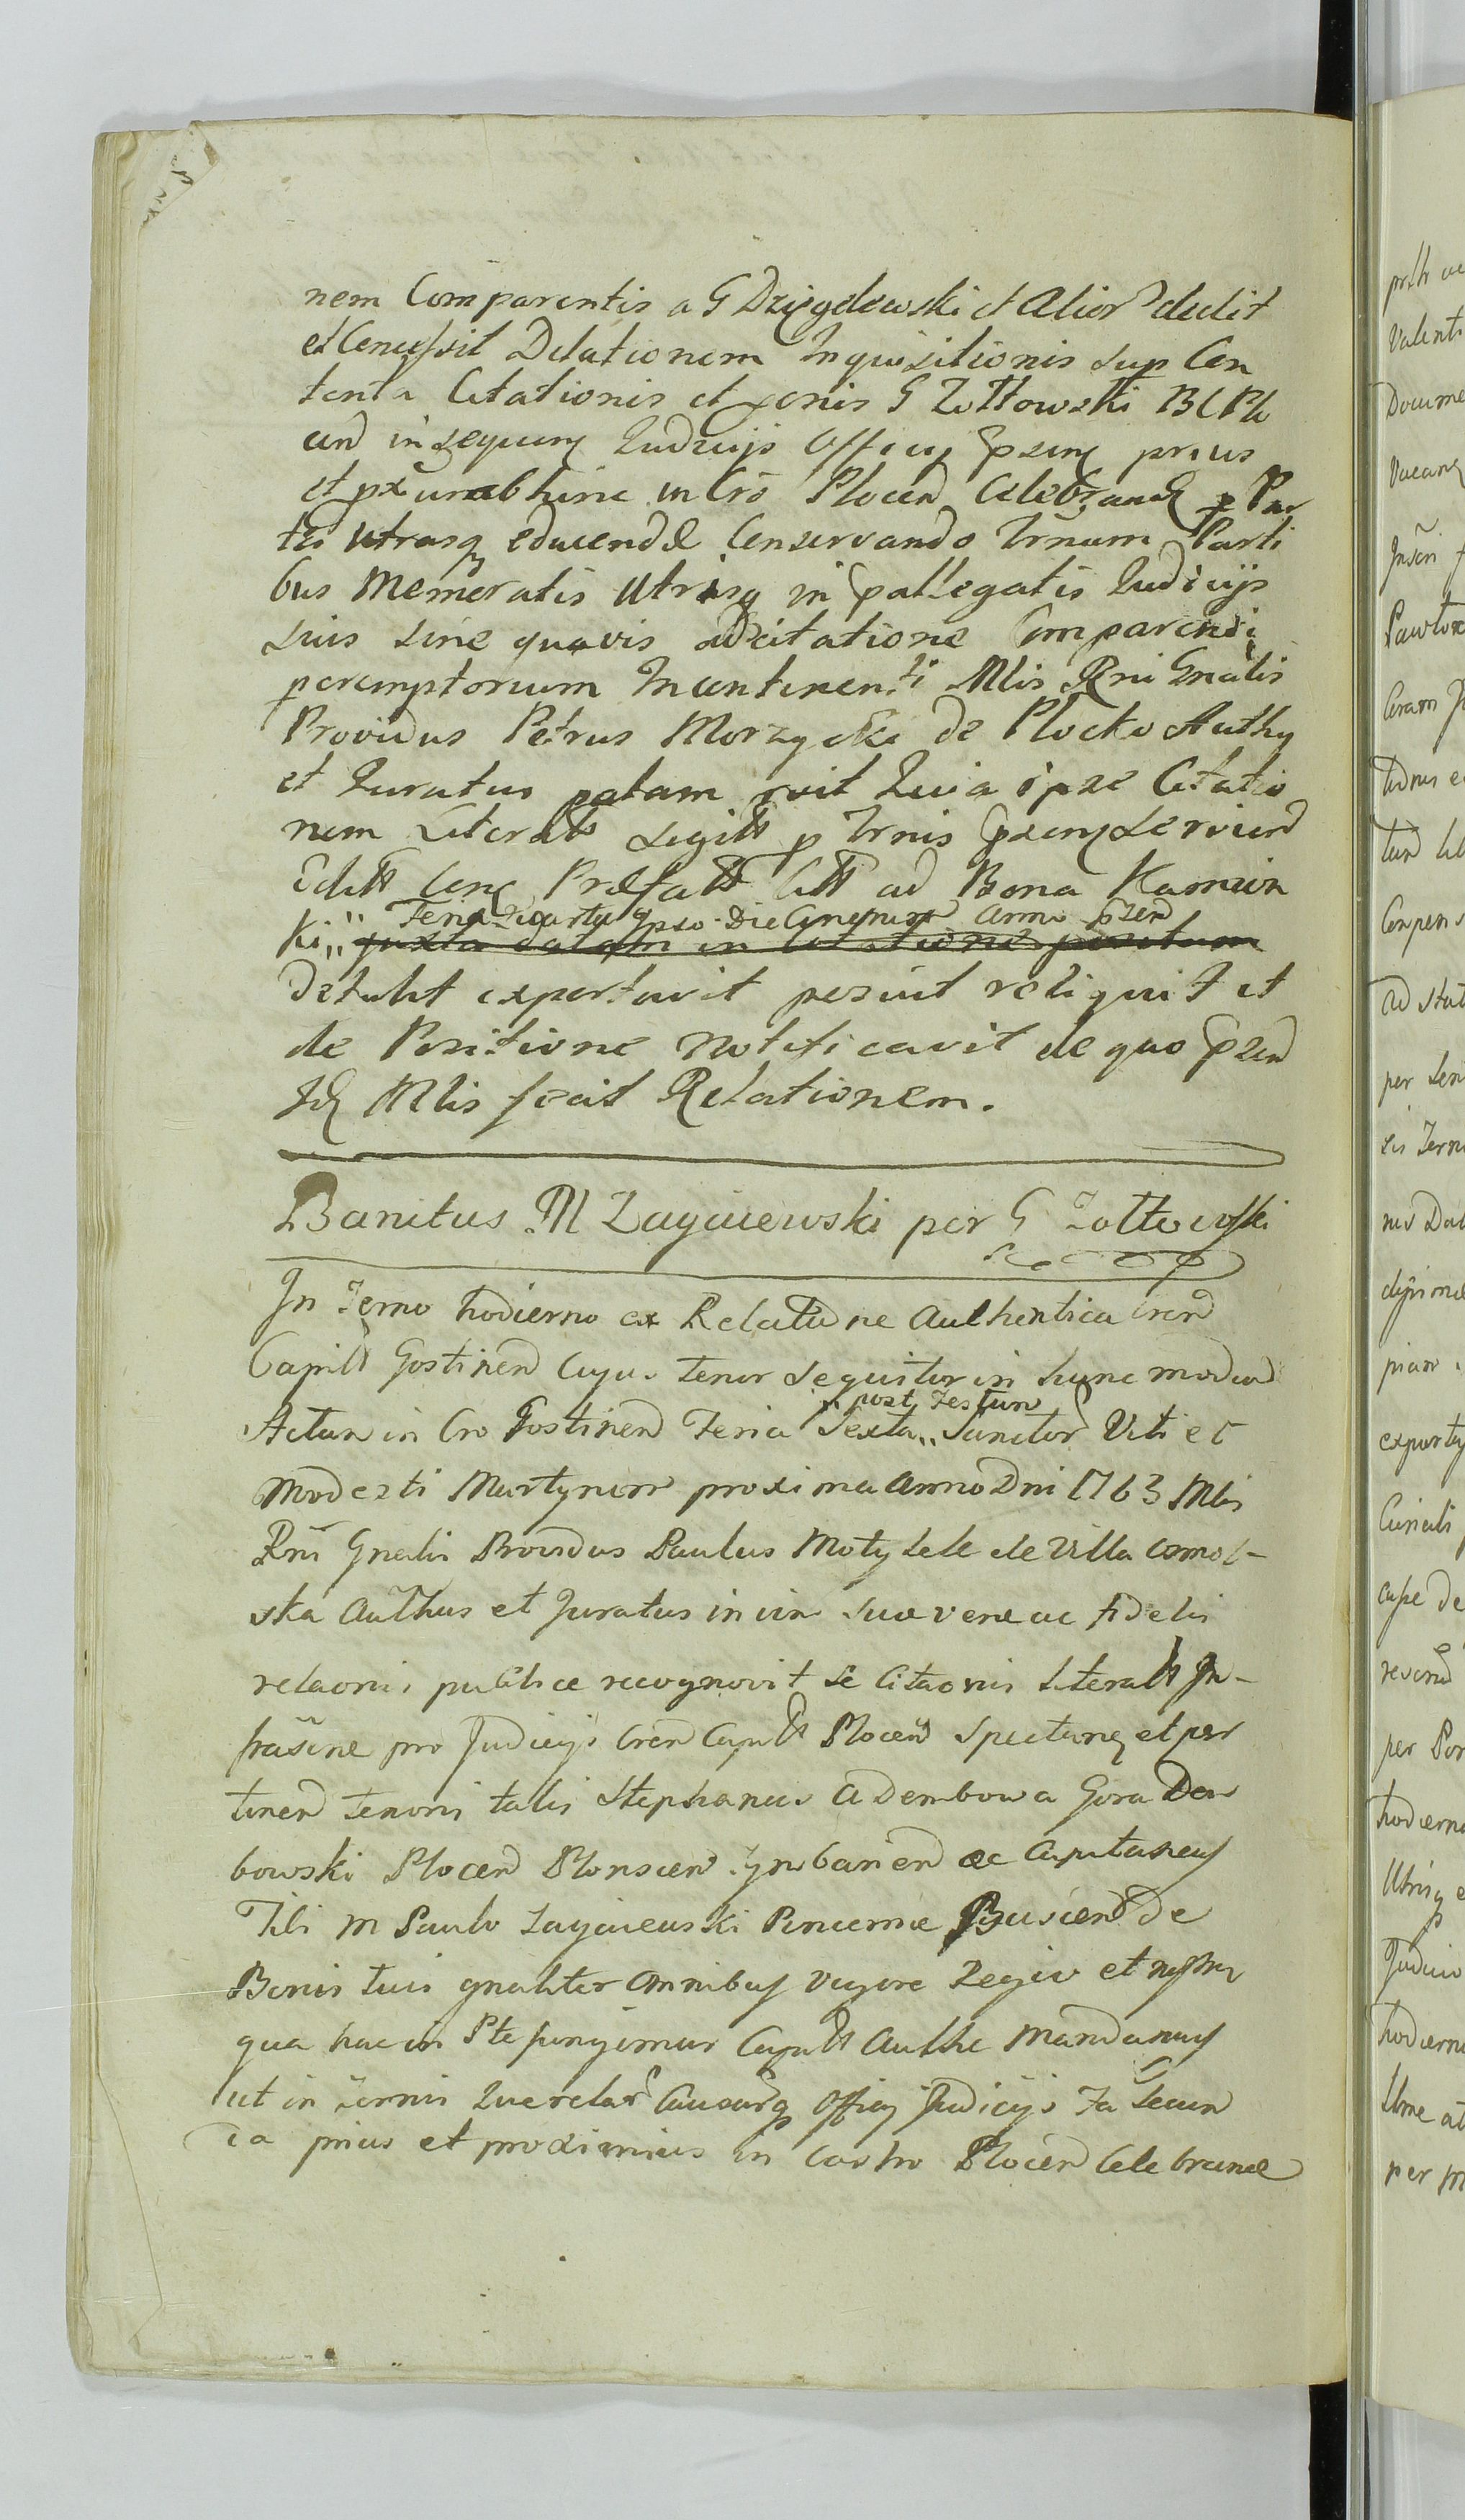 nem Comparentis a G Dzięgelewski et Alior dedit
et Concessit Dilationem Inquisitionis sup Con
tenta Citationis et penis G Zołtowski B C Plo
cen in sequen Judicijs Officij pzen prius
et pxi abhinc in Cro Plocen Celebran p Par
tes utrasq educendæ Conservando Trnum Parti
bus Memoratis Utrisq in pallegatis Judicijs
suis sine quavis adcitatione Comparendi
peremptorium Incontinenti Mlis Rni Gnalis
Providus Petrus Morzycki de Plocko Authy
et Juratus palam rvit Quia ipse Citatio
nem Literal Legitt p Trnis pzen servien
Edit Con Præfat Citt ad Bona Kamion
Feria Quarta ipso Die Cinerum Anno pzen
ki,, juxta datam in Citatione positam
Detulit exportavit posuit reliquit et
de Positione notificavit de quo pzen
Id Mlis fecit Relationem.
Banitus M Zagaiewski per G Zołtowski
In Termo hodierno ex Relatione Authentica Cren
Capitt Gostinen Cujus tenor sequitur in hunc modum
post Festum
Actum in Cro Gostinen Feria Sexta,, Sanctor Viti et
Modesti Martyrum proxima Anno Dni 1763 Mlis
Rni Gnalis Providus Paulus Motylele de Villa Osmol-
ska Authus et Juratus in vim suæ veræ ac fidelis
relaonis publice recognovit se Citaonis Literalt In-
frascne pro Judicijs Cren Capitt Plocen Spectan et per
tinen tenoris talis Stephanus a Dembowa Gora Dem
bowski Plocen Plonscen Zynbarien &c Capitaneus
Tibi M Paulo Zagaiewski Pincernæ Buscen de
Bonis tuis gnaliter omnibus vigore Regia et nostra
qua hac in Pte fungimur Capitt Authe Mandamus
ut in Termis Querelar Causarq Officij Judicijs Fa Secun
da prius et proximius in Castro Plocen Celebrandæ